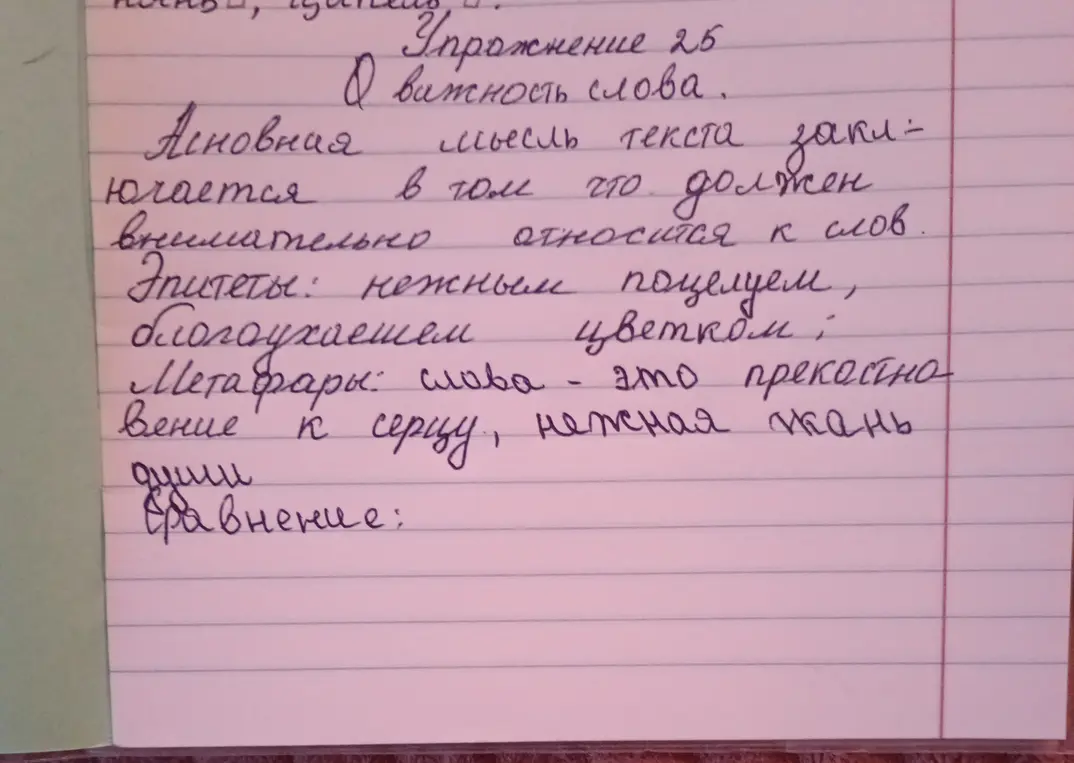 Упражнение 25
О важность слова.
Асновная мысль текста закл-
ючается в том что должен
внимательно относится к слов.
Эпитеты: нежным поцелуем,
благоухаешем цветком;
Метафары: слова - это прекастно-
вение к серцу, нежная ткань
души
Сравнение: